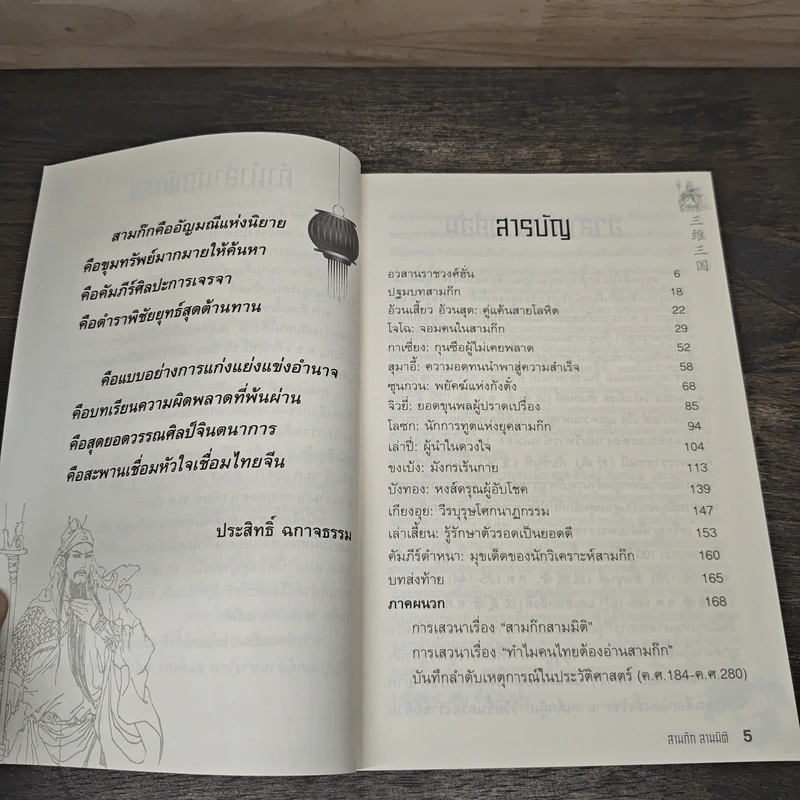 สามก๊กคืออัญมณีแห่งนิยาย
คือขุมทรัพย์มากมายให้ค้นหา
คือคัมภีร์ศิลปะการเจรจา
คือตำราพิชัยยุทธ์สุดต้านทาน
คือแบบอย่างการแก่งแย่งแข่งอำนาจ
คือบทเรียนความผิดพลาดที่พ้นผ่าน
คือสุดยอดวรรณศิลป์จินตนาการ
คือสะพานเชื่อมหัวใจเชื่อมไทยจีน
ประสิทธิ์ ฉกาจธรรม
三維三国
สารบัญ
อวสานราชวงศ์ฮั่น 6
ปฐมบทสามก๊ก 18
อ้วนเสี้ยว อ้วนสุด: คู่แค้นสายโลหิต 22
โจโฉ: จอมคนในสามก๊ก 29
กาเซี่ยง: กุนซือผู้ไม่เคยพลาด 52
สุมาอี้: ความอดทนนำพาสู่ความสำเร็จ 58
ซุนกวน: พยัคฆ์แห่งกังตั๋ง 68
จิวยี่: ยอดขุนพลผู้ปราดเปรื่อง 85
โลซก: นักการทูตแห่งยุคสามก๊ก 94
เล่าปี่: ผู้นำในดวงใจ 104
ขงเบ้ง: มังกรเร้นกาย 113
บังทอง: หงส์ดรุณผู้อับโชค 139
เกียงอุย: วีรบุรุษโศกนาฏกรรม 147
เล่าเสี้ยน: รู้รักษาตัวรอดเป็นยอดดี 153
คัมภีร์ดำหนา: มุขเด็ดของนักวิเคราะห์สามก๊ก 160
บทส่งท้าย 165
ภาคผนวก 168
การเสวนาเรื่อง "สามก๊กสามมิติ"
การเสวนาเรื่อง "ทำไมคนไทยต้องอ่านสามก๊ก"
บันทึกลำดับเหตุการณ์ในประวัติศาสตร์ (ค.ศ.184-ค.ศ.280)
สามก๊ก สามมิติ 5